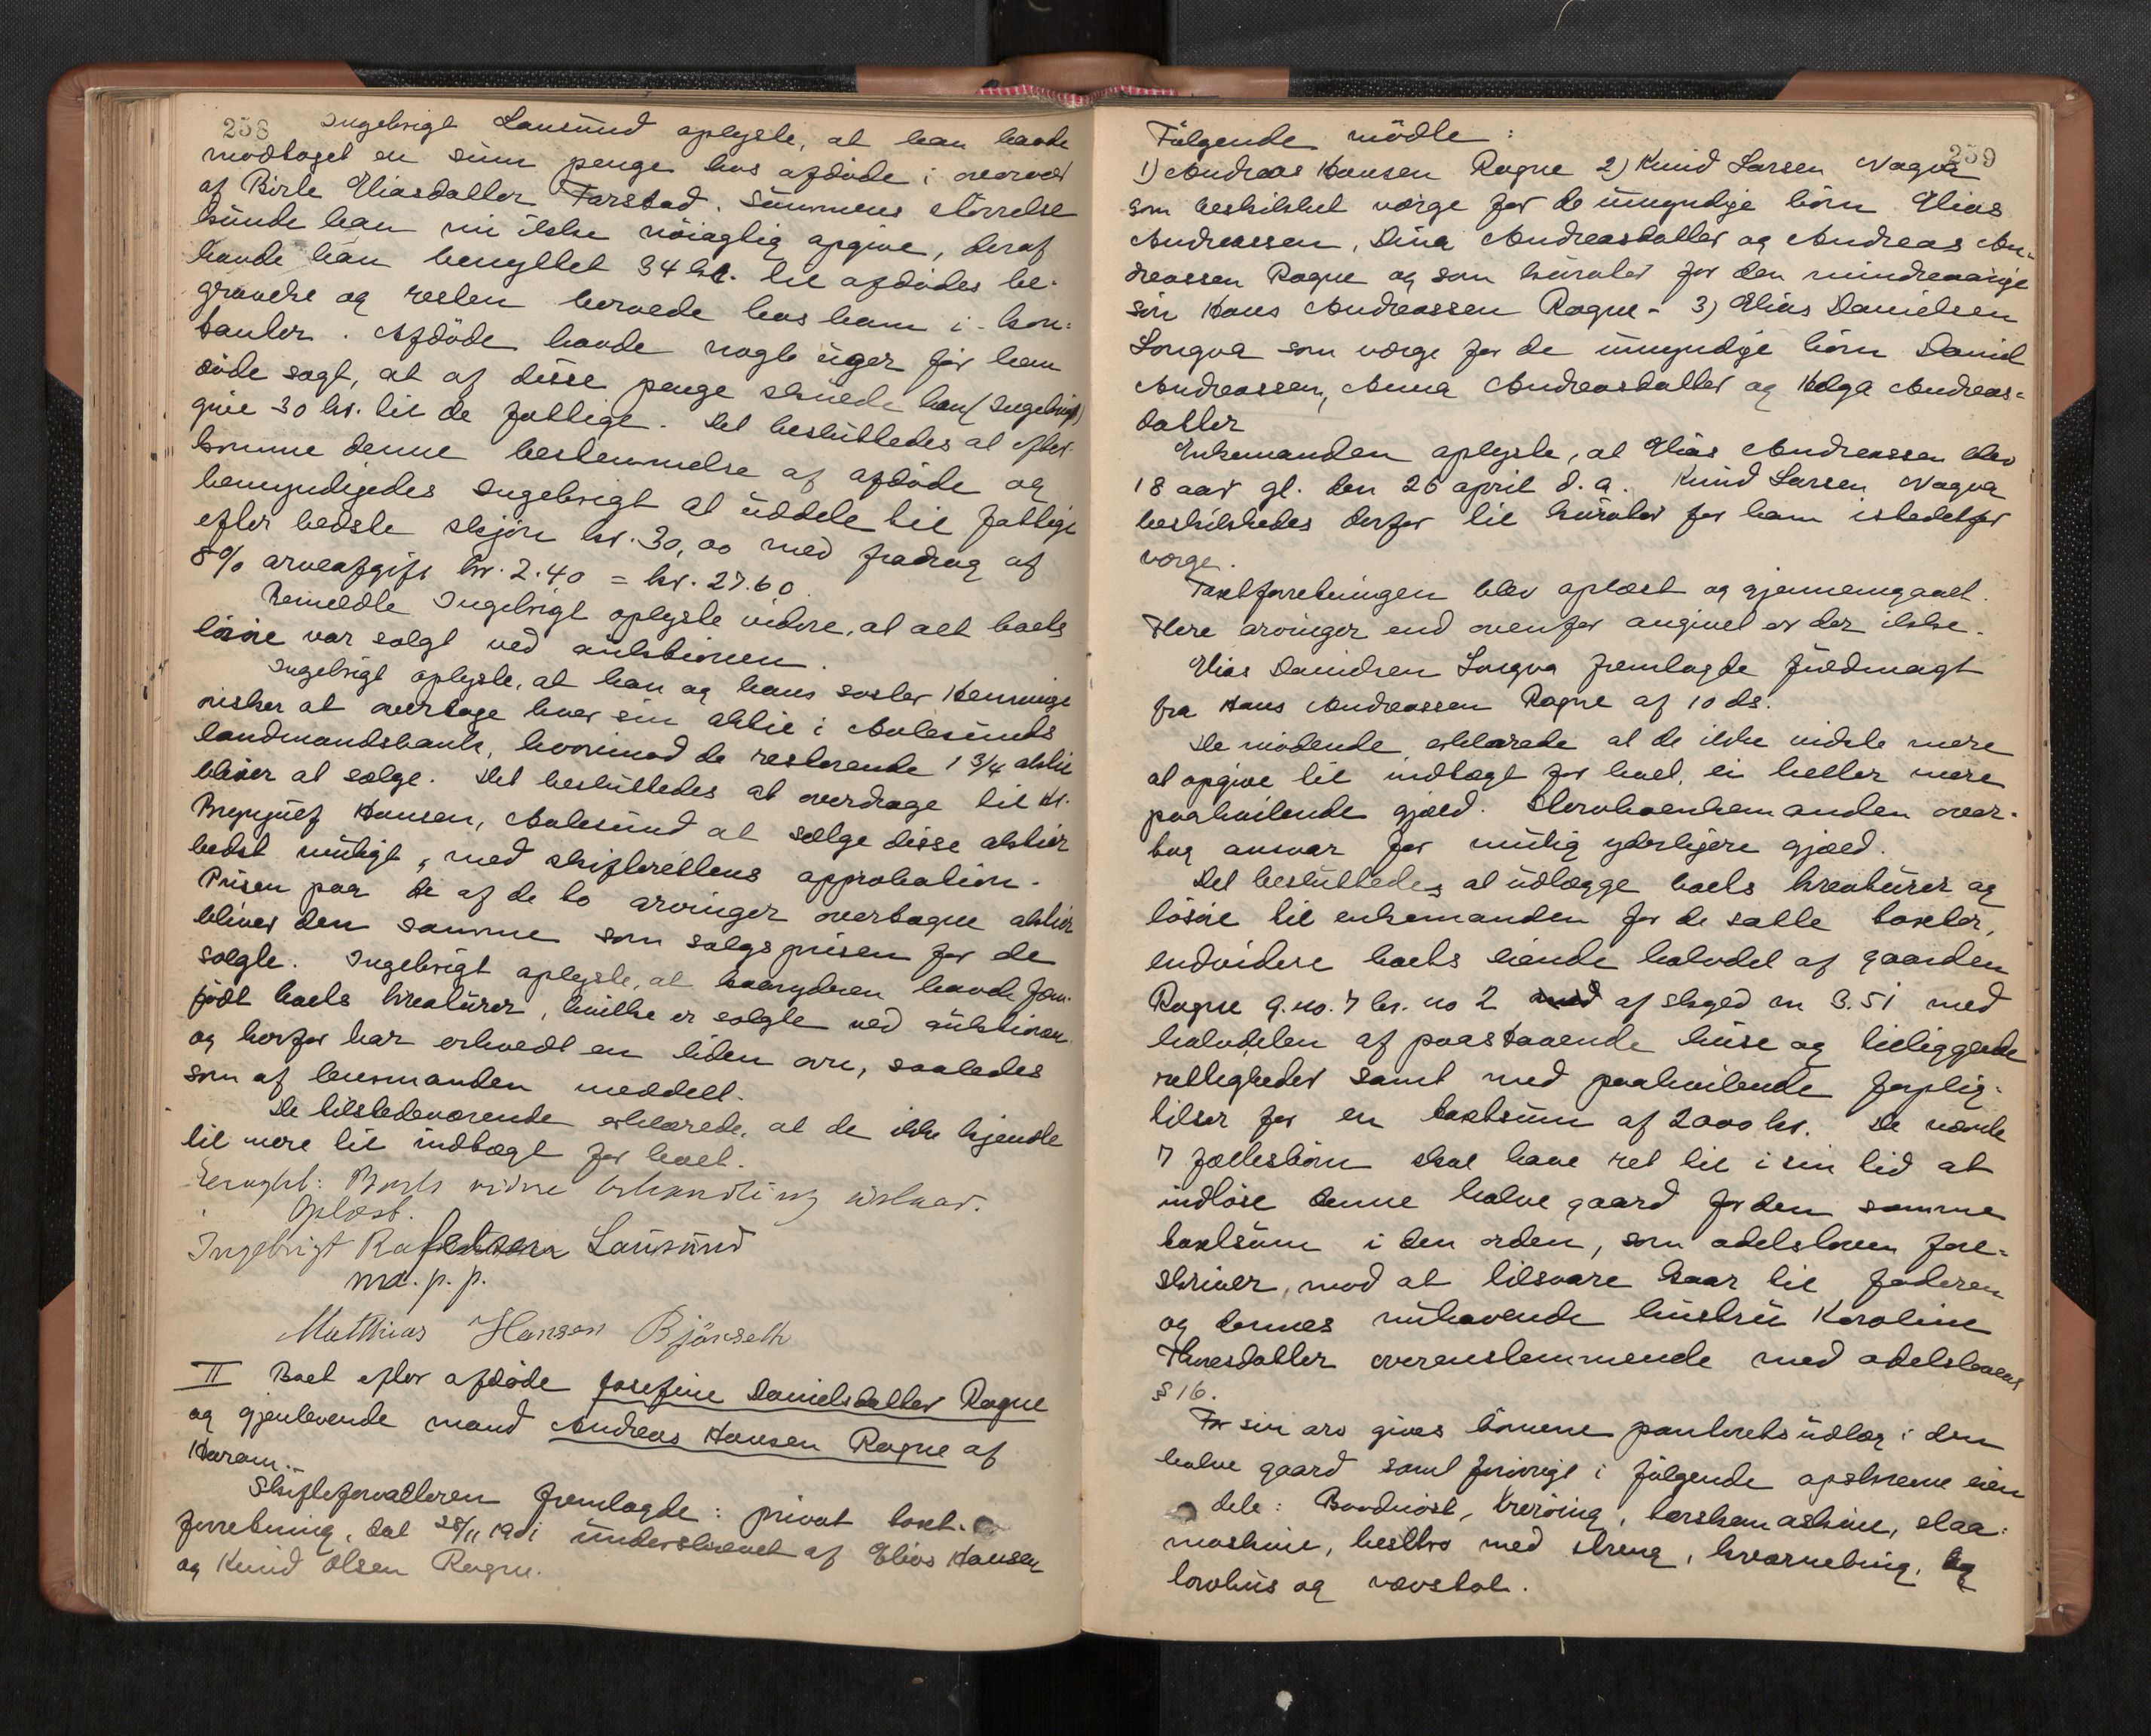 258 Ingebrigt Lausund oplyste, at han havde
modtaget en sum penge hos afdøde i overvær
af Birte Eliasdatter Farstad. Summens størrelse
kunde han nu ikke nøiagtig opgive, deraf
havde han benyttet 34 kr. til afdødes be-
gravelse og resten beroede hos ham i kon-
tanter. Afdøde havde nogle uger før han
døde sagt, at af disse penge skulde han (Ingebrigt)
give 30 kr. til de fattige. Det besluttedes at efter-
komme denne bestemmelse af afdøde og
bemyndigedes Ingebrigt at uddele til fattige
efter bedste skjøn kr. 30,00 med fradrag af
8% arveafgift kr. 2.40 = kr. 27.60.
Bemeldte Ingebrigt oplyste videre, at alt boets
løsøre var solgt ved auktionen.
Ingebrigt oplyste, at han og hans søster Henninge
ønsker at overtage hver sin aktie i Aalesunds
landmandsbank, hvorimod de resterende 1 3/4 aktie
bliver at sælge. Det besluttedes at overdrage til Hr.
Brynjulf Hansen, Aalesund at sælge disse aktier
bedst muligt, med skifterettens approbation.
Prisen paa de af de to arvinger overtagne aktier
bliver den samme som salgsprisen for de
solgte. Ingebrigt oplyste, at boe havde
født boets kreaturer, hvilke er solgte ved auktionen
og herfor har erholdt en liden ov, saaledes
som af lensmanden meddelt.
De tilstedeværende erklærede, at de ikke kjendte
til mere til indtægt for boet.
Eragtet: Boets vidre behandling udstaar.
Oplæst.
Ingebrigt Rafaelsen Lausund
m. p. p.
Matthias Hansen Bjørseth
II Boet efter afdøde Josefine Danielsdatter Rogne
og gjenlevende mand Andreas Hansen Rogne af
Haram.
Skifteforvalteren fremlagde: privat taxt-
forretning, dat 28/11 1901 underskrevet af Elias Hansen
og Knud Olsen Rogne.
259
Følgende mødte:
1) Andreas Hansen Rogne 2) Knud Larsen Vagva
som beskikket værge for de umyndige børn Elias
Andreassen, Dina Andreasdatter og Andreas An-
dreassen Rogne og som kurator for den mindreaarige
søn Hans Andreassen Rogne - 3) Elias Danielsen
Longva som værge for de umyndige børn Daniel
Andreassen, Anna Andreasdatter og Helga Andreas-
datter
Enkemanden oplyste, at Elias Andreassen blev
18 aar gl. den 26 april d.a. Knud Larsen Vagva
beskikkedes derfor til kurator for ham istedetfor
værge.
Taxtforretningen blev oplæst og gjennemgaaet.
Flere arvinger end ovenfor angivet er der ikke.
Elias Danielsen Longva fremlagde fuldmagt
fra Hans Andreassen Rogne af 10 ds.
De mødende erklærede at de ikke vidste mere
at opgive til indtægt for boet, ei heller mere
paahvilende gjæld. Stervboenkemanden over-
tog ansvar for mulig yderligere gjæld.
Det besluttedes at udlægge boets kreaturer og
løsøre til enkemanden for de satte taxter,
endvidere boets eiende halvdel af gaarden
Rogne g.no. 7 br. no 2 af skyld m 3.51 med
halvdelen af paastaaende huse og tilliggende
rettigheder samt med paahvilende forplig-
telser for en taxtsum af 2000 kr. De nævnte
7 fællesbørn skal have ret til i sin tid at
indløse denne halve gaard for den samme
taxtsum i den orden, som odelsloven fore-
skriver, mod at tilsvare kaar til faderen
og dennes nuhavende hustru Karoline
Thoresdatter overensstemmende med odelslovens
§ 16.
For sin arv gives børnene panteretsudlæg i den
halve gaard samt forøvrigt i følgende opskrevne eien
dele: Baadnøst, treröing, tærskemaskine, slaa-
maskine, hesthro med streng, kværnebrug,
torvhus og vævstol.